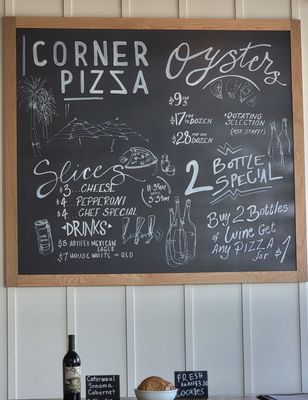 CORNER
PIZZA
Slices
3... CHEESE
4... PEPPERONI
4 CHEF SPECIAL
11:30AM
3:30PM
DRINKS
$5 ARTIFEX MEXICAN
LAGER
$7 HOUSE WHITE OR RED
Oysters
$9 FOR 3
$17 FOR ½ DOZEN
$28 FOR ONE DOZEN
*ROTATING
SELECTION*
(ASK STAFF)
2 BOTTLE
SPECIAL
BUY 2 BOTTLES
of WINE GET
ANY PIZZA
for $1
CATERWAUL
SONOMA
CABERNET
FRESH
BAKED $3.50
COOKIES